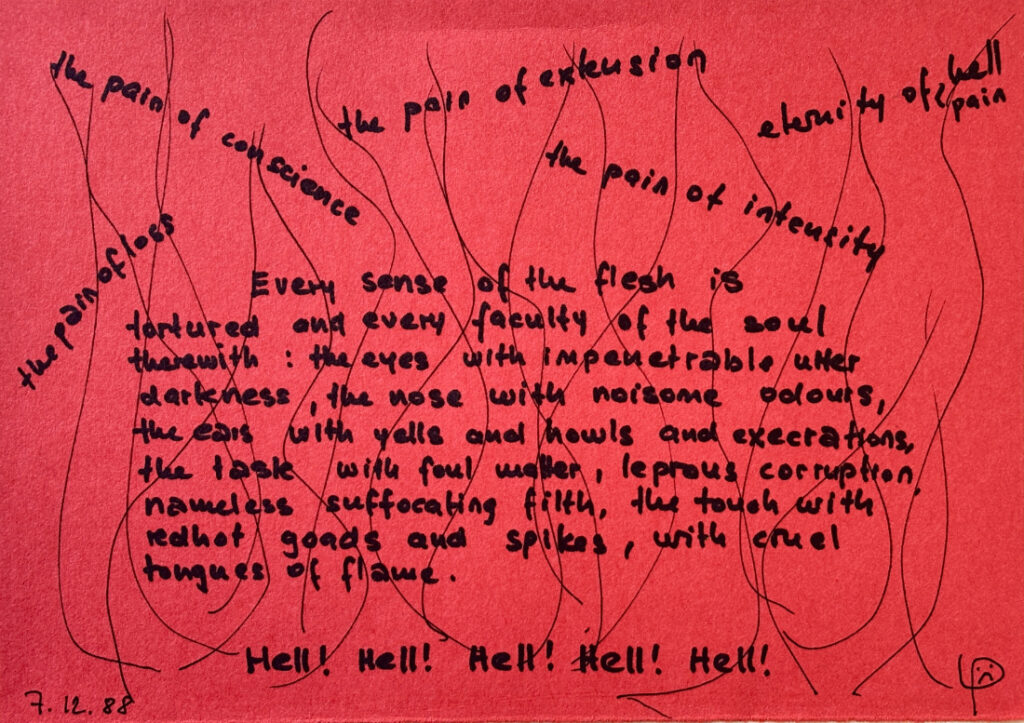 the pain of conscience
the pain of extension
eternity of hell
pain
the pain of intensity
the pain of loss
Every sense of the flesh is
tortured and every faculty of the soul
therewith : the eyes with impenetrable utter
darkness, the nose with noisome odours,
the ears with yells and howls and execrations,
the taste with foul matter, leprous corruption,
nameless suffocating filth, the touch with
redhot goads and spikes, with cruel
tongues of flame.
Hell! Hell! Hell! Hell! Hell!
7. 12. 88